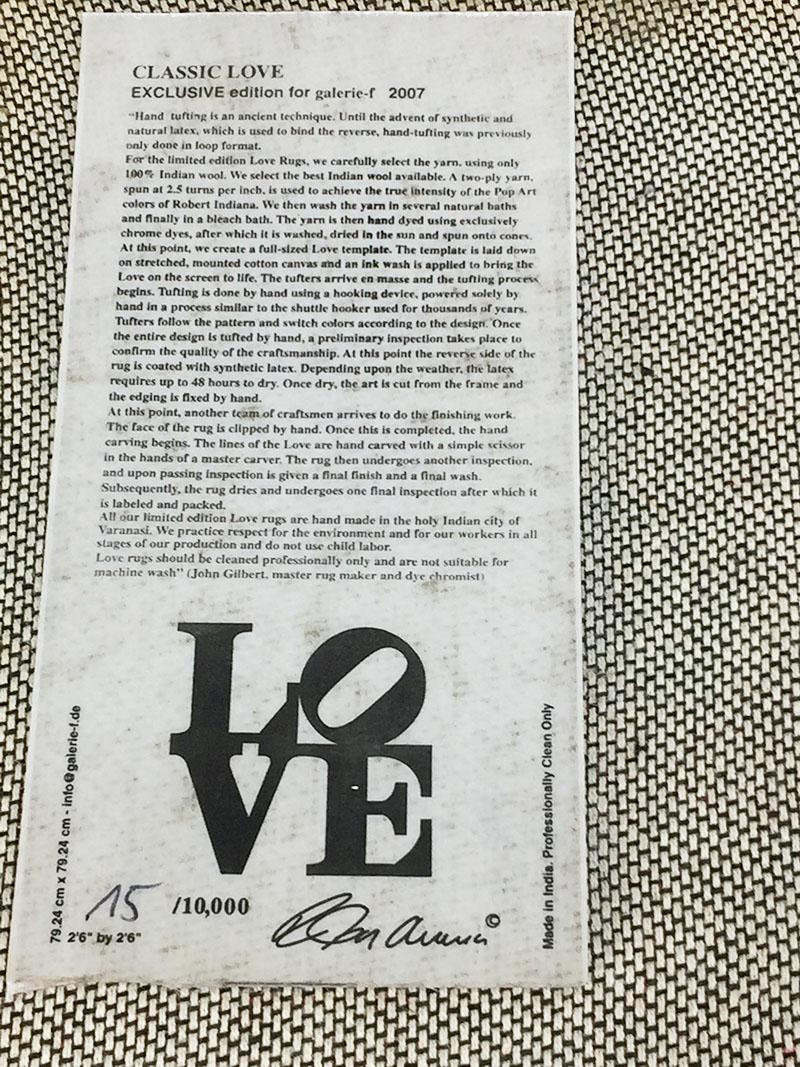 CLASSIC LOVE
EXCLUSIVE edition for galerie-f 2007
"Hand tufting is an ancient technique. Until the advent of synthetic and
natural latex, which is used to bind the reverse, hand-tufting was previously
only done in loop format.
For the limited edition Love Rugs, we carefully select the yarn, using only
100% Indian wool. We select the best Indian wool available. A two-ply yarn,
spun at 2.5 turns per inch, is used to achieve the true intensity of the Pop Art
colors of Robert Indiana. We then wash the yarn in several natural baths
and finally in a bleach bath. The yarn is then hand dyed using exclusively
chrome dyes, after which it is washed, dried in the sun and spun onto cones.
At this point, we create a full-sized Love template. The template is laid down
on stretched, mounted cotton canvas and an ink wash is applied to bring the
Love on the screen to life. The tufters arrive en masse and the tufting process
begins. Tufting is done by hand using a hooking device, powered solely by
hand in a process similar to the shuttle hooker used for thousands of years.
Tufters follow the pattern and switch colors according to the design. Once
the entire design is tufted by hand, a preliminary inspection takes place to
confirm the quality of the craftsmanship. At this point the reverse side of the
rug is coated with synthetic latex. Depending upon the weather, the latex
requires up to 48 hours to dry. Once dry, the art is cut from the frame and
the edging is fixed by hand.
At this point, another team of craftsmen arrives to do the finishing work.
The face of the rug is clipped by hand. Once this is completed, the hand
carving begins. The lines of the Love are hand carved with a simple scissor
in the hands of a master carver. The rug then undergoes another inspection,
and upon passing inspection is given a final finish and a final wash.
Subsequently, the rug dries and undergoes one final inspection after which it
is labeled and packed.
All our limited edition Love rugs are hand made in the holy Indian city of
Varanasi. We practice respect for the environment and for our workers in all
stages of our production and do not use child labor.
Love rugs should be cleaned professionally only and are not suitable for
machine wash" (John Gilbert, master rug maker and dye chromist)
LO
VE
79.24 cm x 79.24 cm - info@galerie-f.de
Made in India. Professionally Clean Only
15 /10,000
©
2'6" by 2'6"